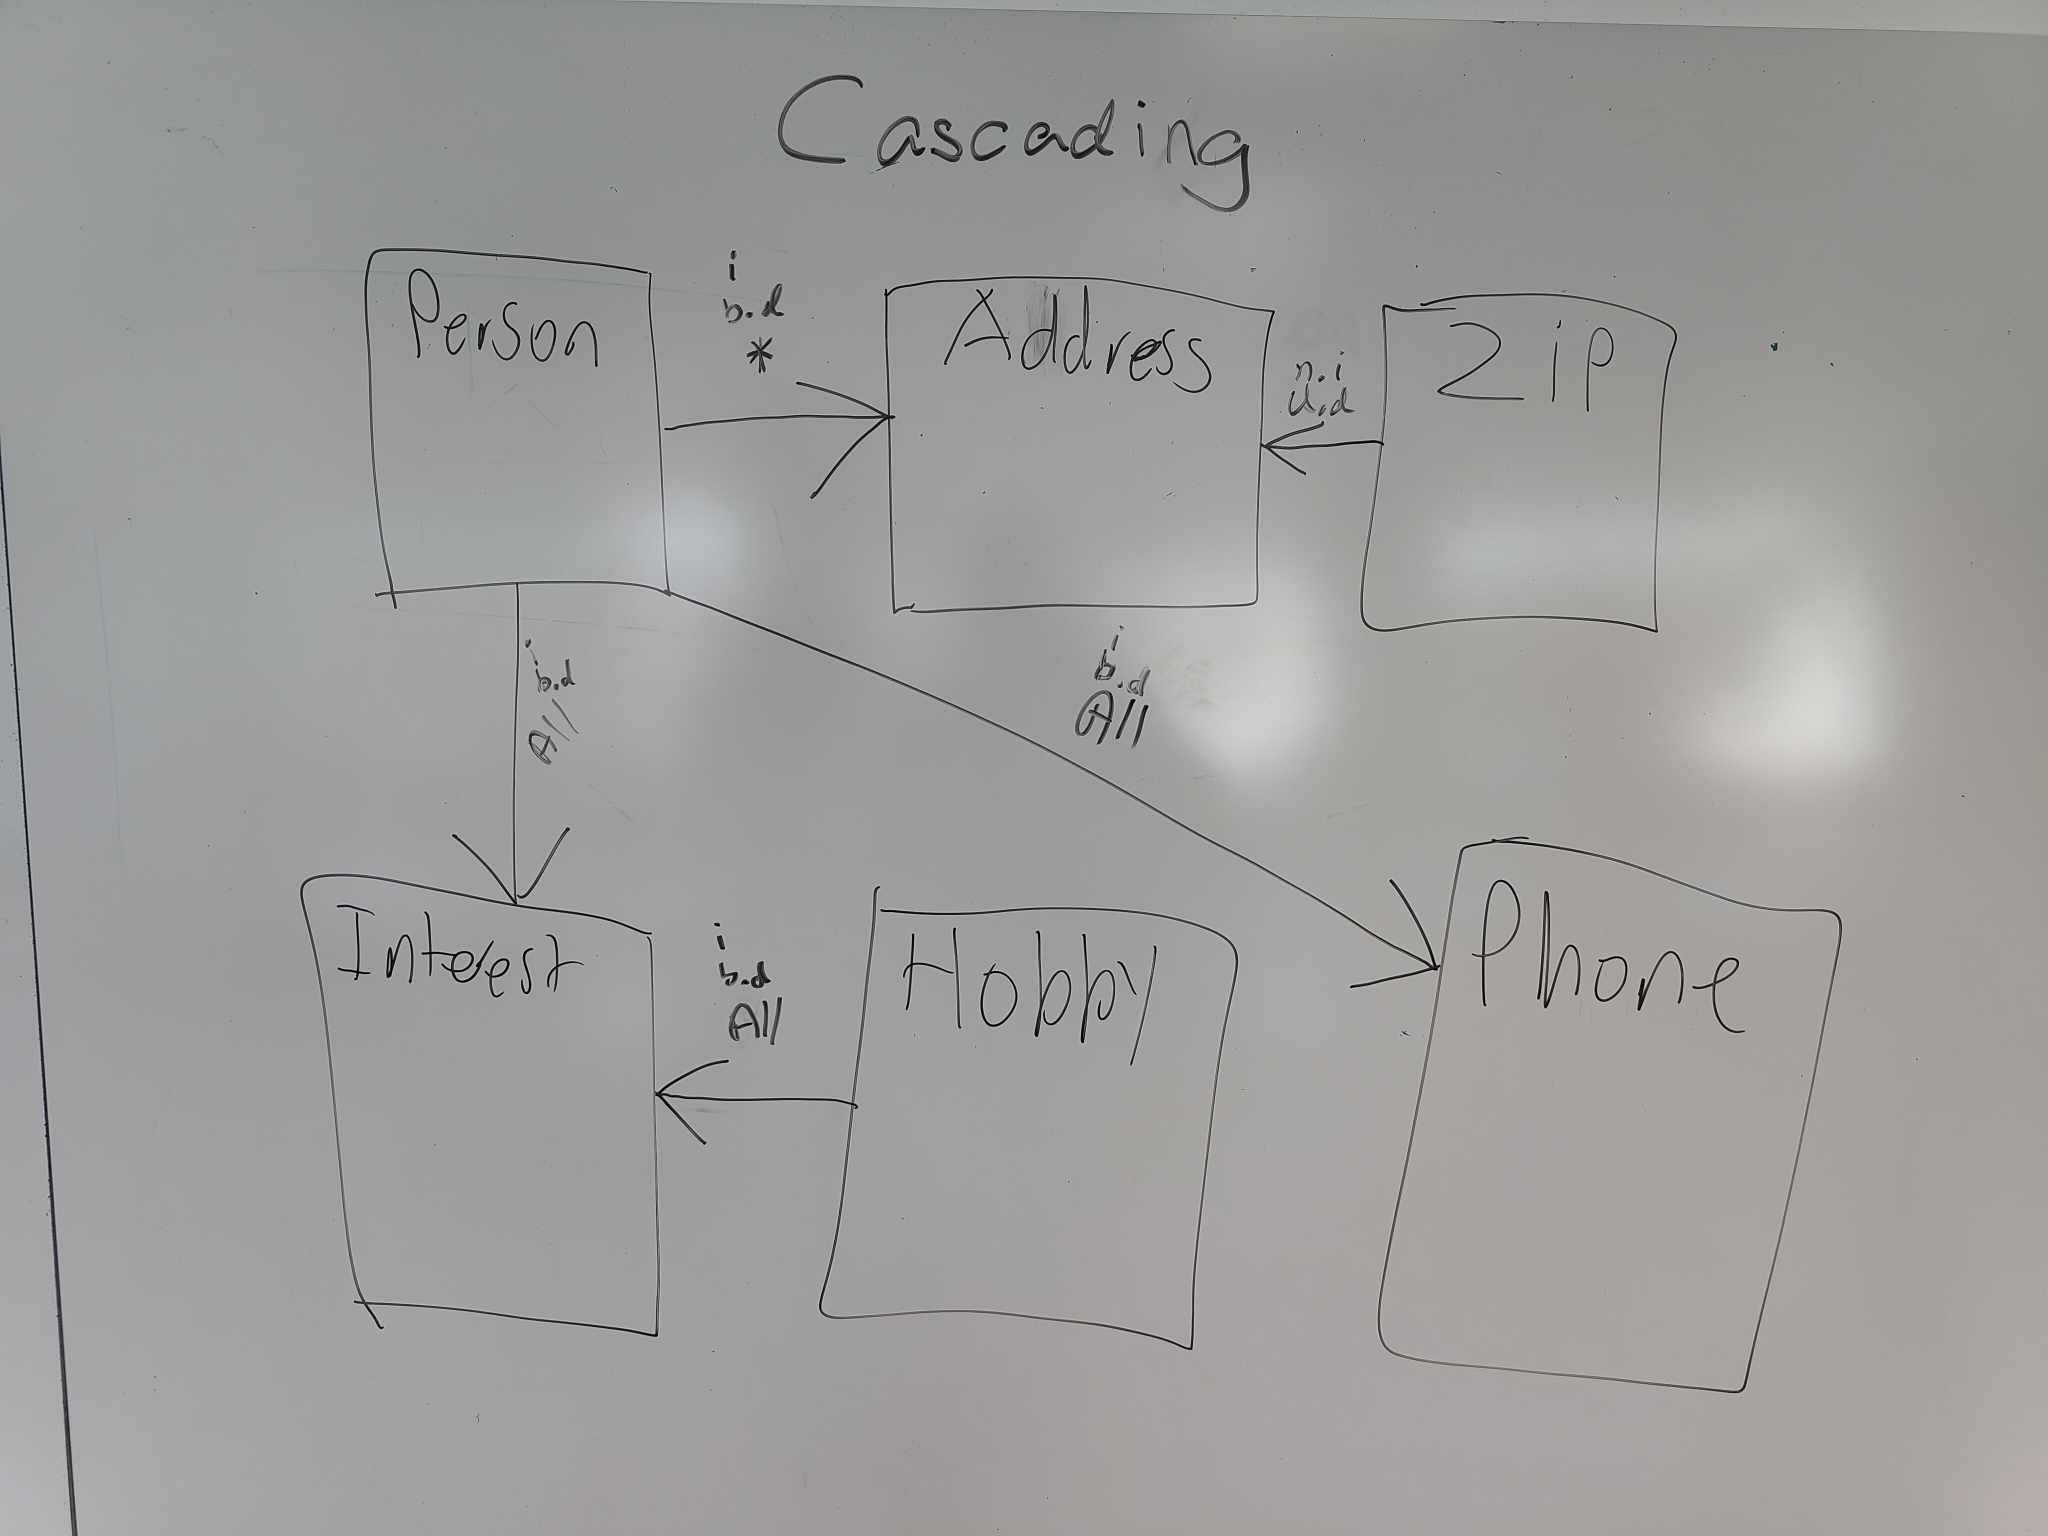 Cascading
Person
i
b.d
*
Address
n.i
u.d
Zip
i
b.d
All
i
b.d
All
Interest
i
b.d
All
Hobby
Phone